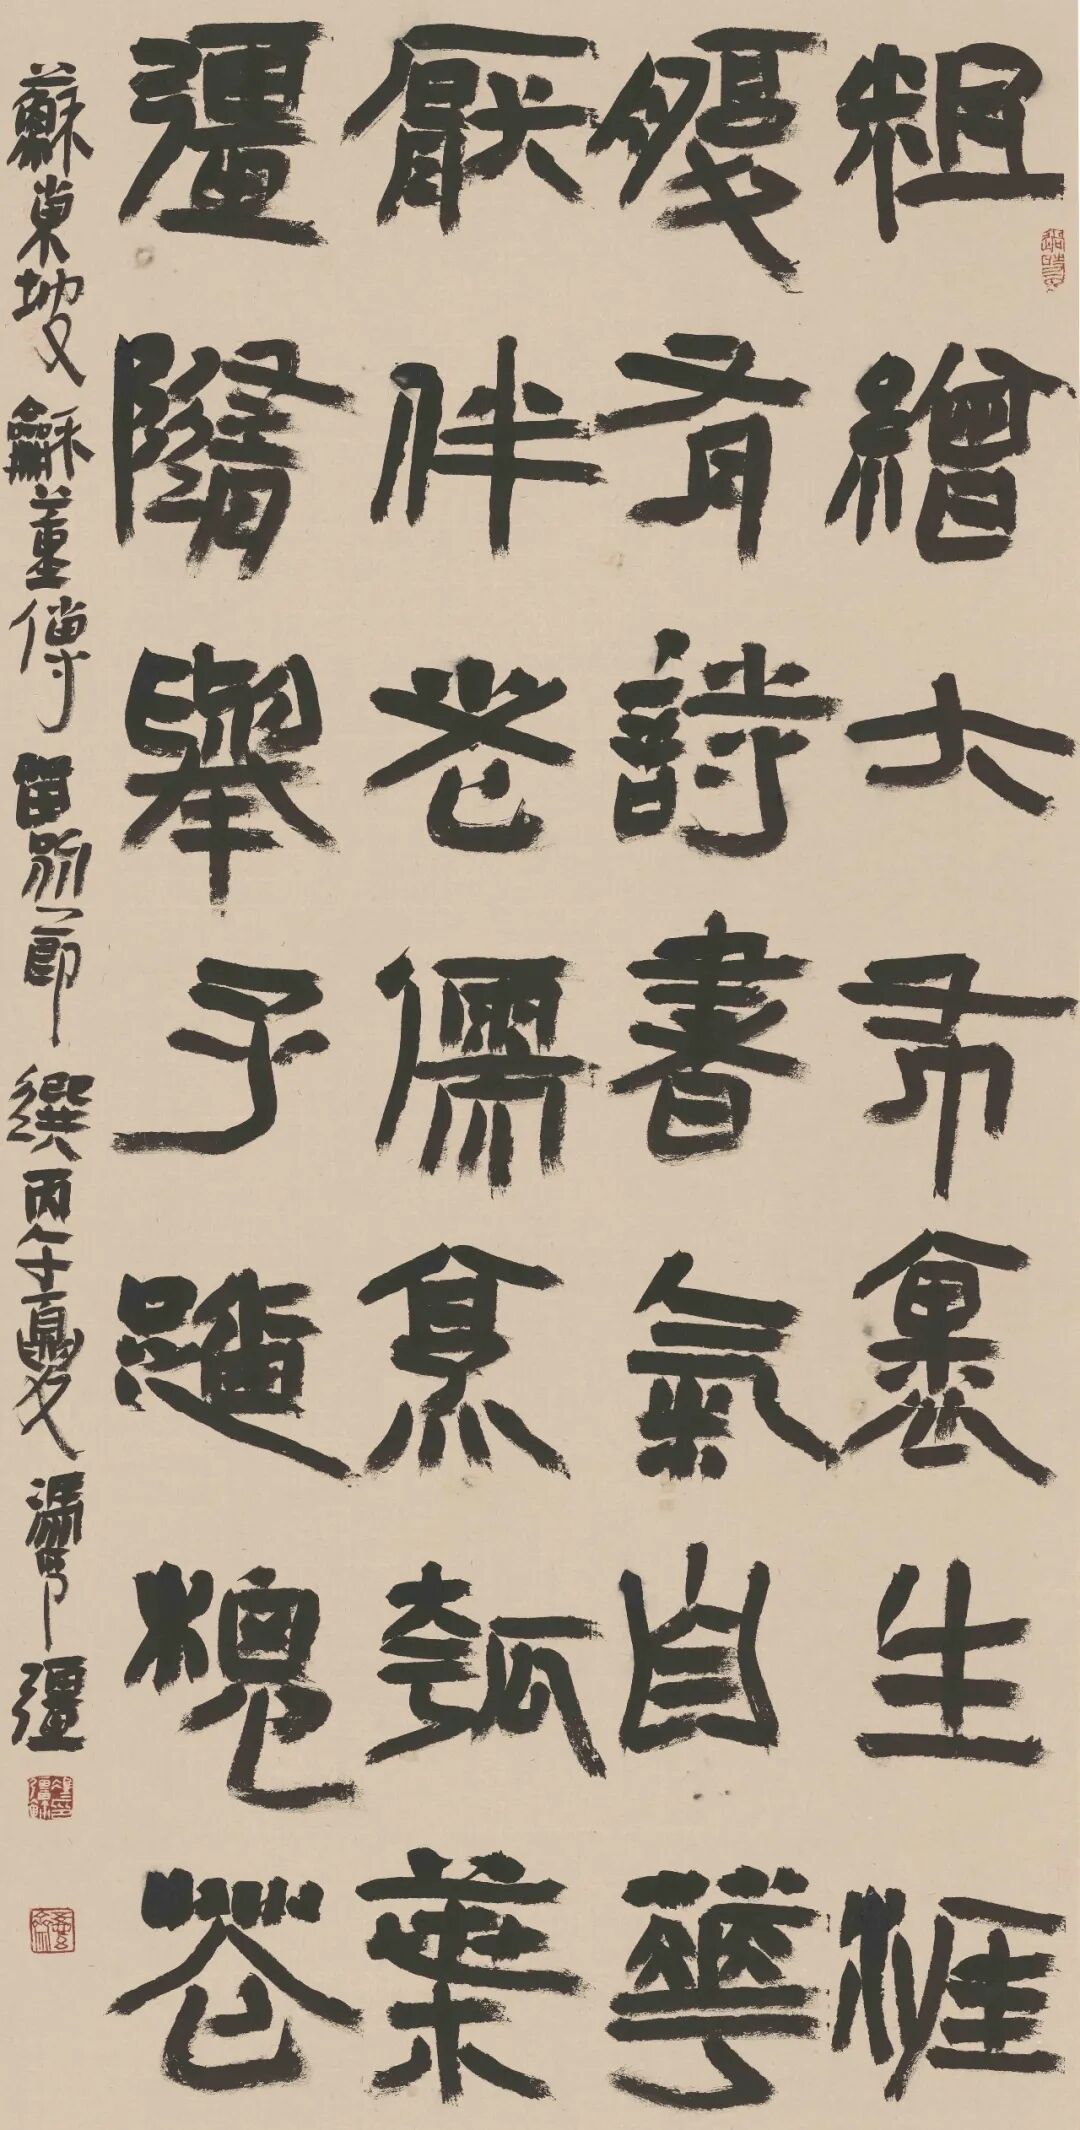 粗繒大布裹生涯
腹有詩書氣自華
厭伴老儒烹瓠葉
彊隨舉子踏槐花
蘇東坡龢董傳留別節選丙午夏馮印彊